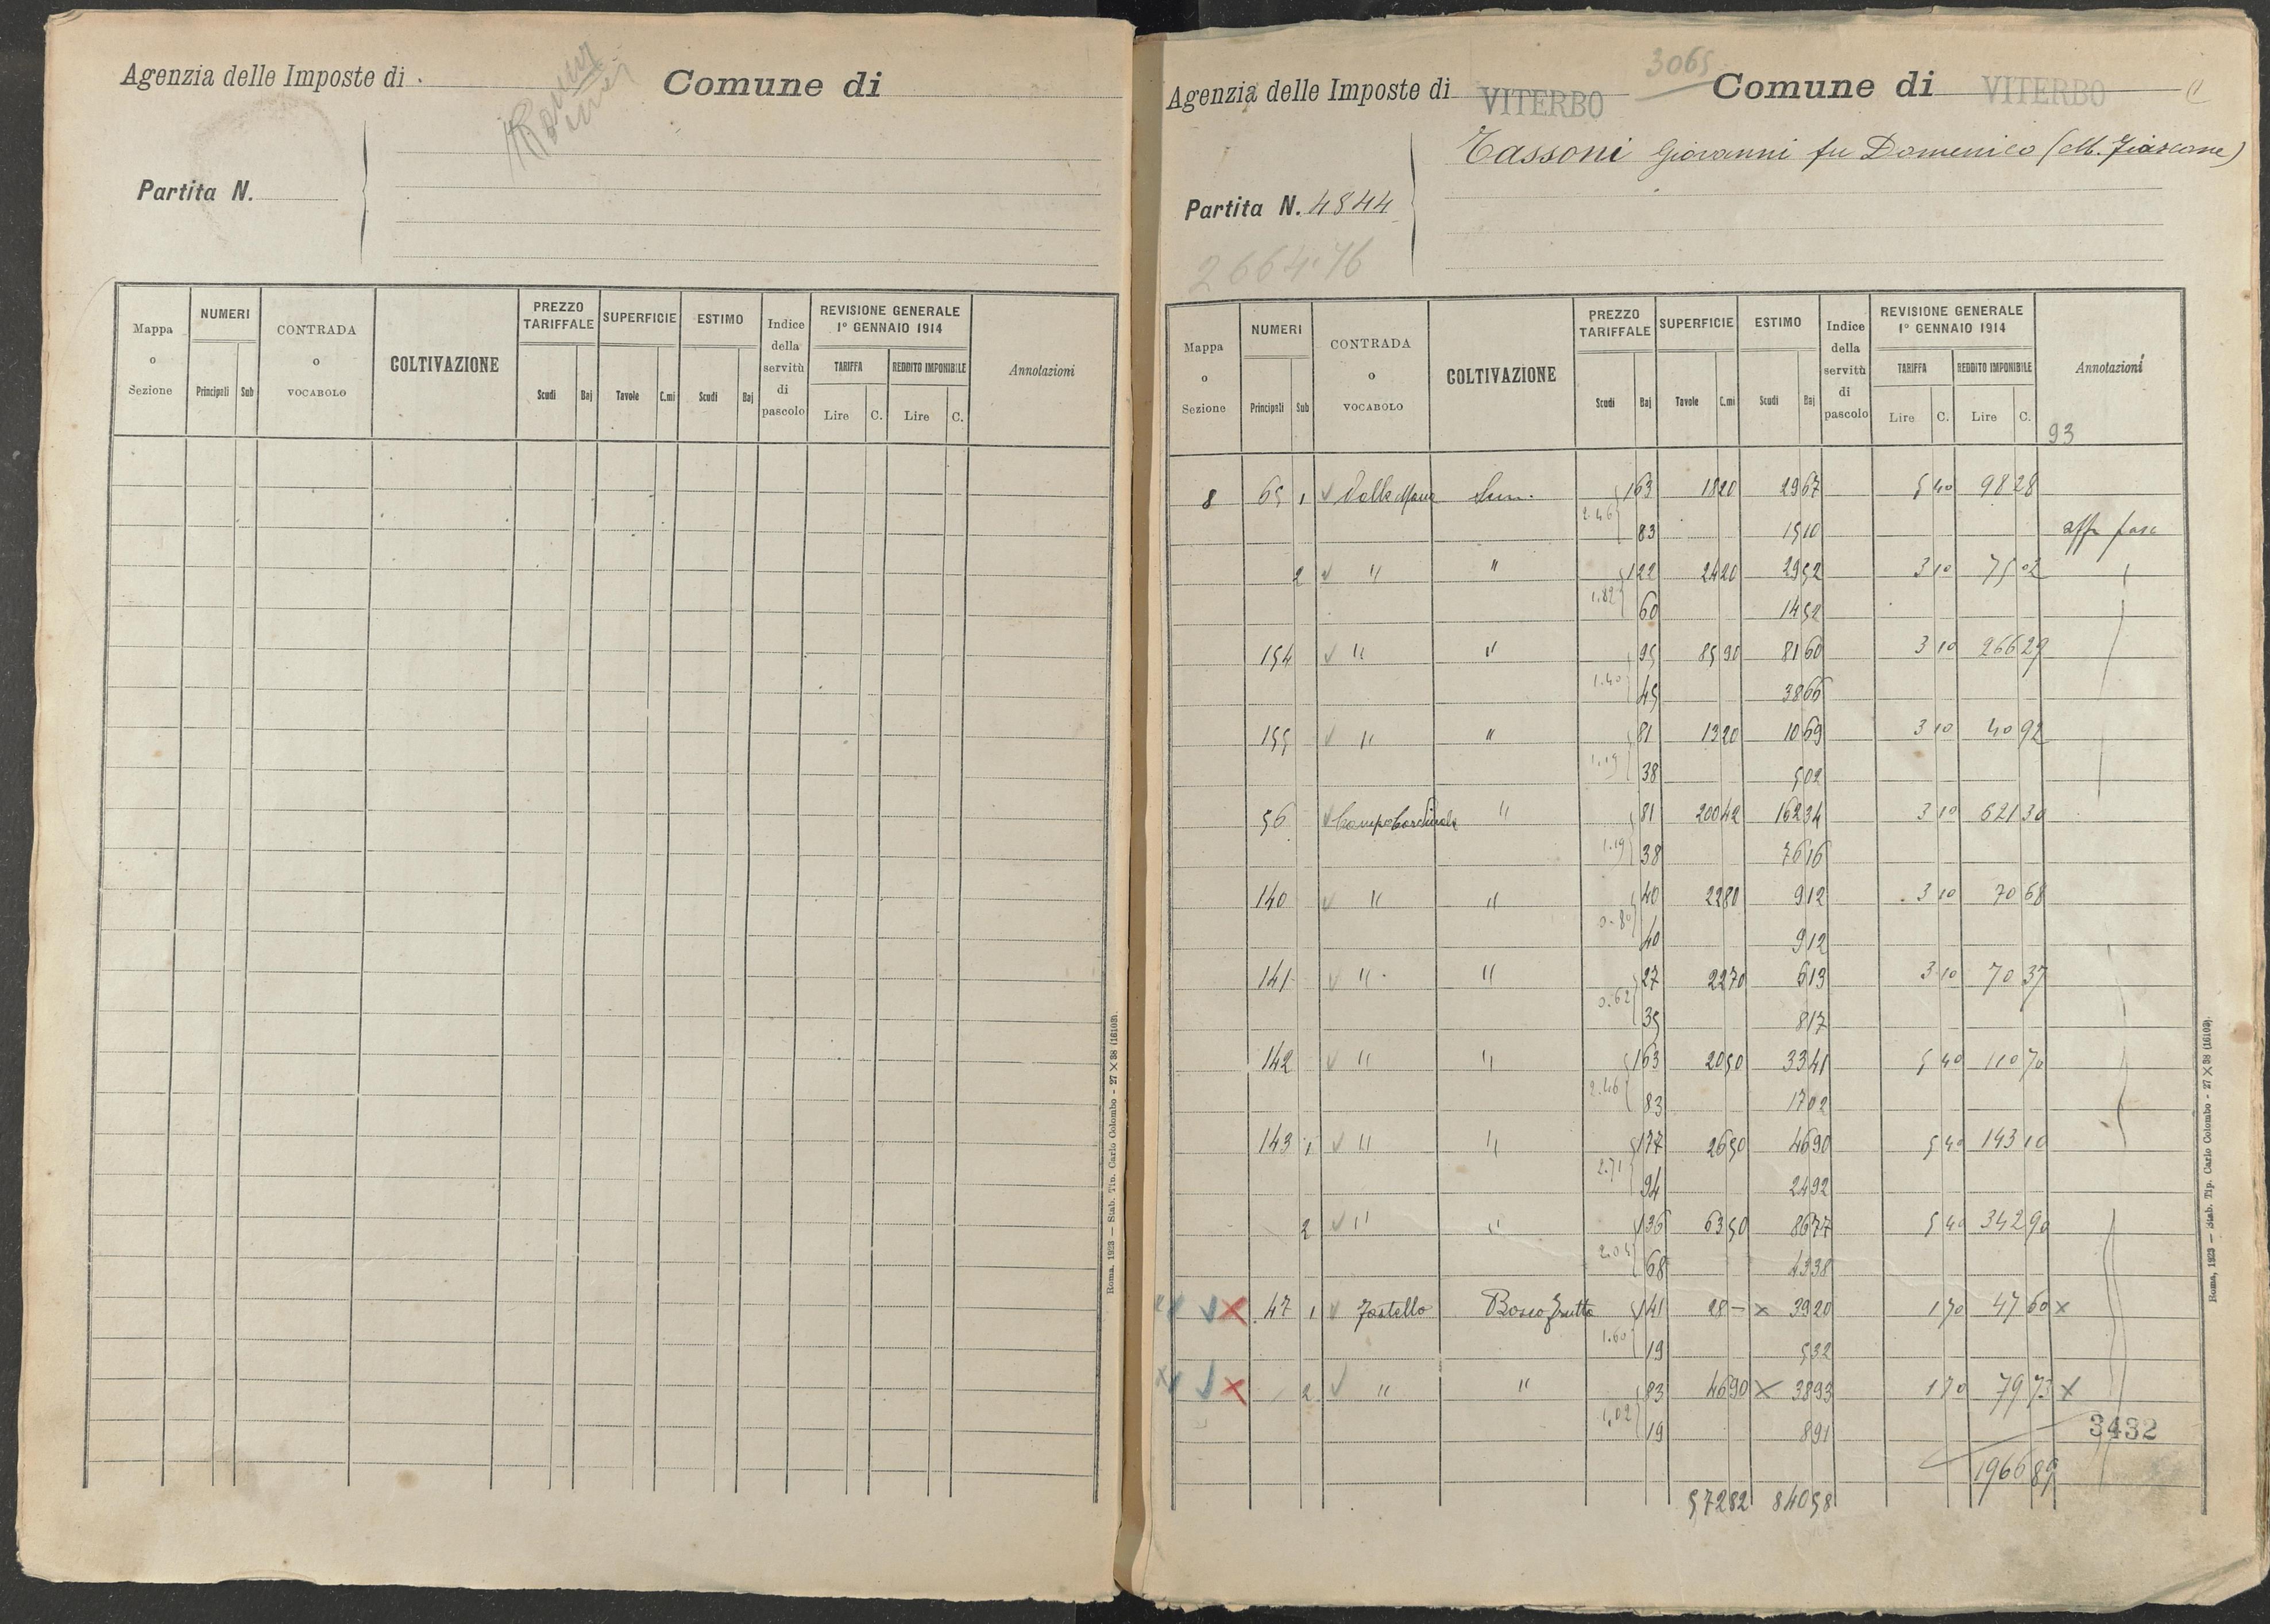 Agenzia delle Imposte di
Comune di
Partita N.
Mappa o Sezione
NUMERI
Principali Sub
CONTRADA o VOCABOLO
COLTIVAZIONE
PREZZO TARIFFALE
Scudi Baj
SUPERFICIE
Tavole C.mi
ESTIMO
Scudi Baj
Indice della servitù di pascolo
REVISIONE GENERALE 1° GENNAIO 1914
TARIFFA
Lire C.
REDDITO IMPONIBILE
Lire C.
Annotazioni
Roma, 1923 — Stab. Tip. Carlo Colombo - 27 × 38 (16103).
3065
Agenzia delle Imposte di VITERBO Comune di VITERBO
Tassoni Giovanni fu Domenico
Partita N. 4844
2664.76
Mappa o Sezione
NUMERI
Principali Sub
CONTRADA o VOCABOLO
COLTIVAZIONE
PREZZO TARIFFALE
Scudi Baj
SUPERFICIE
Tavole C.mi
ESTIMO
Scudi Baj
Indice della servitù di pascolo
REVISIONE GENERALE 1° GENNAIO 1914
TARIFFA
Lire C.
REDDITO IMPONIBILE
Lire C.
Annotazioni
93
8 65 1 1 63 18 20 29 67 5 40 98 28
2.46 83 15 10
2 " " 1 22 24 20 29 52 3 10 75 02
1.82 60 14 52
154 " " 95 85 90 81 60 3 10 266 29
1.40 45 38 66
155 " " 81 13 20 10 69 3 10 40 92
1.19 38 5 02
56 Campo Cardinale " 81 200 42 162 34 3 10 621 30
1.19 38 76 16
140 " " 40 22 80 9 12 3 10 70 68
0.80 40 9 12
141 " " 27 22 70 6 13 3 10 70 37
0.62 35 8 17
142 " " 1 63 20 50 33 41 5 40 110 70
2.46 83 17 02
143 1 " " 1 77 26 50 46 90 5 40 143 10
2.71 94 24 92
2 " " 1 36 63 50 86 77 5 40 342 90
2.04 68 43 38
X 47 1 Bosco frutto 1 41 28 — X 39 20 1 70 47 60 X
1.60 19 5 32
X 2 " " 83 46 90 X 38 93 1 70 79 73 X
1.02 19 8 91
3432
1966 89
572 82 840 58
Roma, 1923 — Stab. Tip. Carlo Colombo - 27 × 38 (16103).